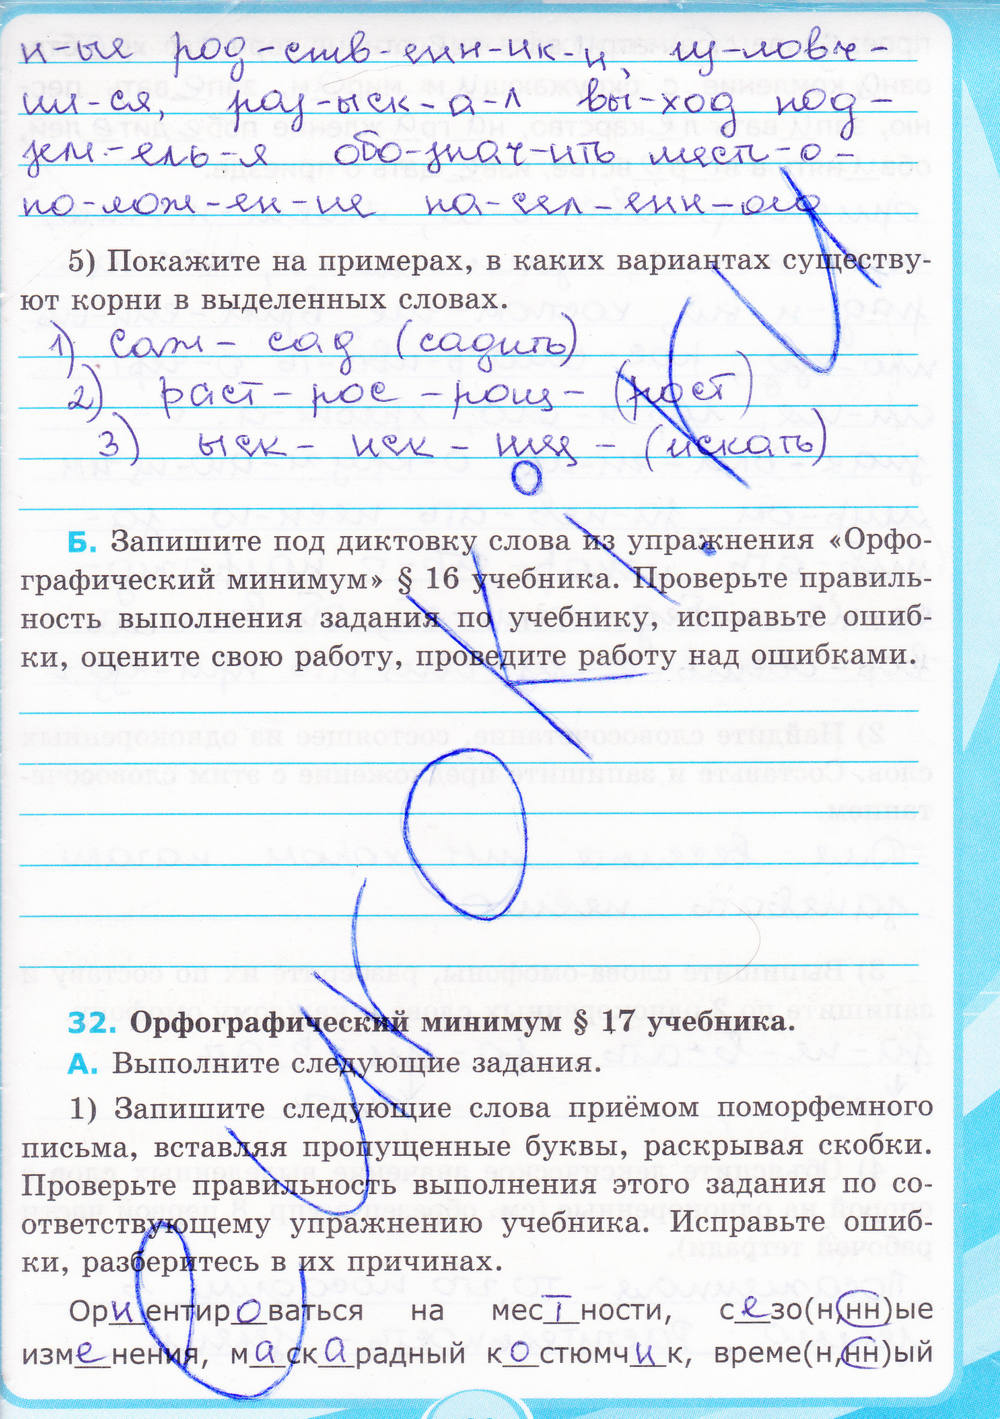 н-ые род-ств-енн-ик-и, из-ловч-
ил-ся, раз-ыск-а-л вы-ход под-
зем-ель-я обо-знач-ить мест-о-
по-лож-ен-ие на-сел-енн-ого
5) Покажите на примерах, в каких вариантах существу-
ют корни в выделенных словах.
1) саж - сад (садить)
2) раст - рос - рощ - (рост)
3) ыск - иск - ищ - (искать)
Б. Запишите под диктовку слова из упражнения «Орфо-
графический минимум» § 16 учебника. Проверьте правиль-
ность выполнения задания по учебнику, исправьте ошиб-
ки, оцените свою работу, проведите работу над ошибками.
32. Орфографический минимум § 17 учебника.
А. Выполните следующие задания.
1) Запишите следующие слова приёмом поморфемного
письма, вставляя пропущенные буквы, раскрывая скобки.
Проверьте правильность выполнения этого задания по со-
ответствующему упражнению учебника. Исправьте ошиб-
ки, разберитесь в их причинах.
Ориентироваться на местности, сезо(н,нн)ые
изменения, маскарадный костюмчик, време(н,нн)ый